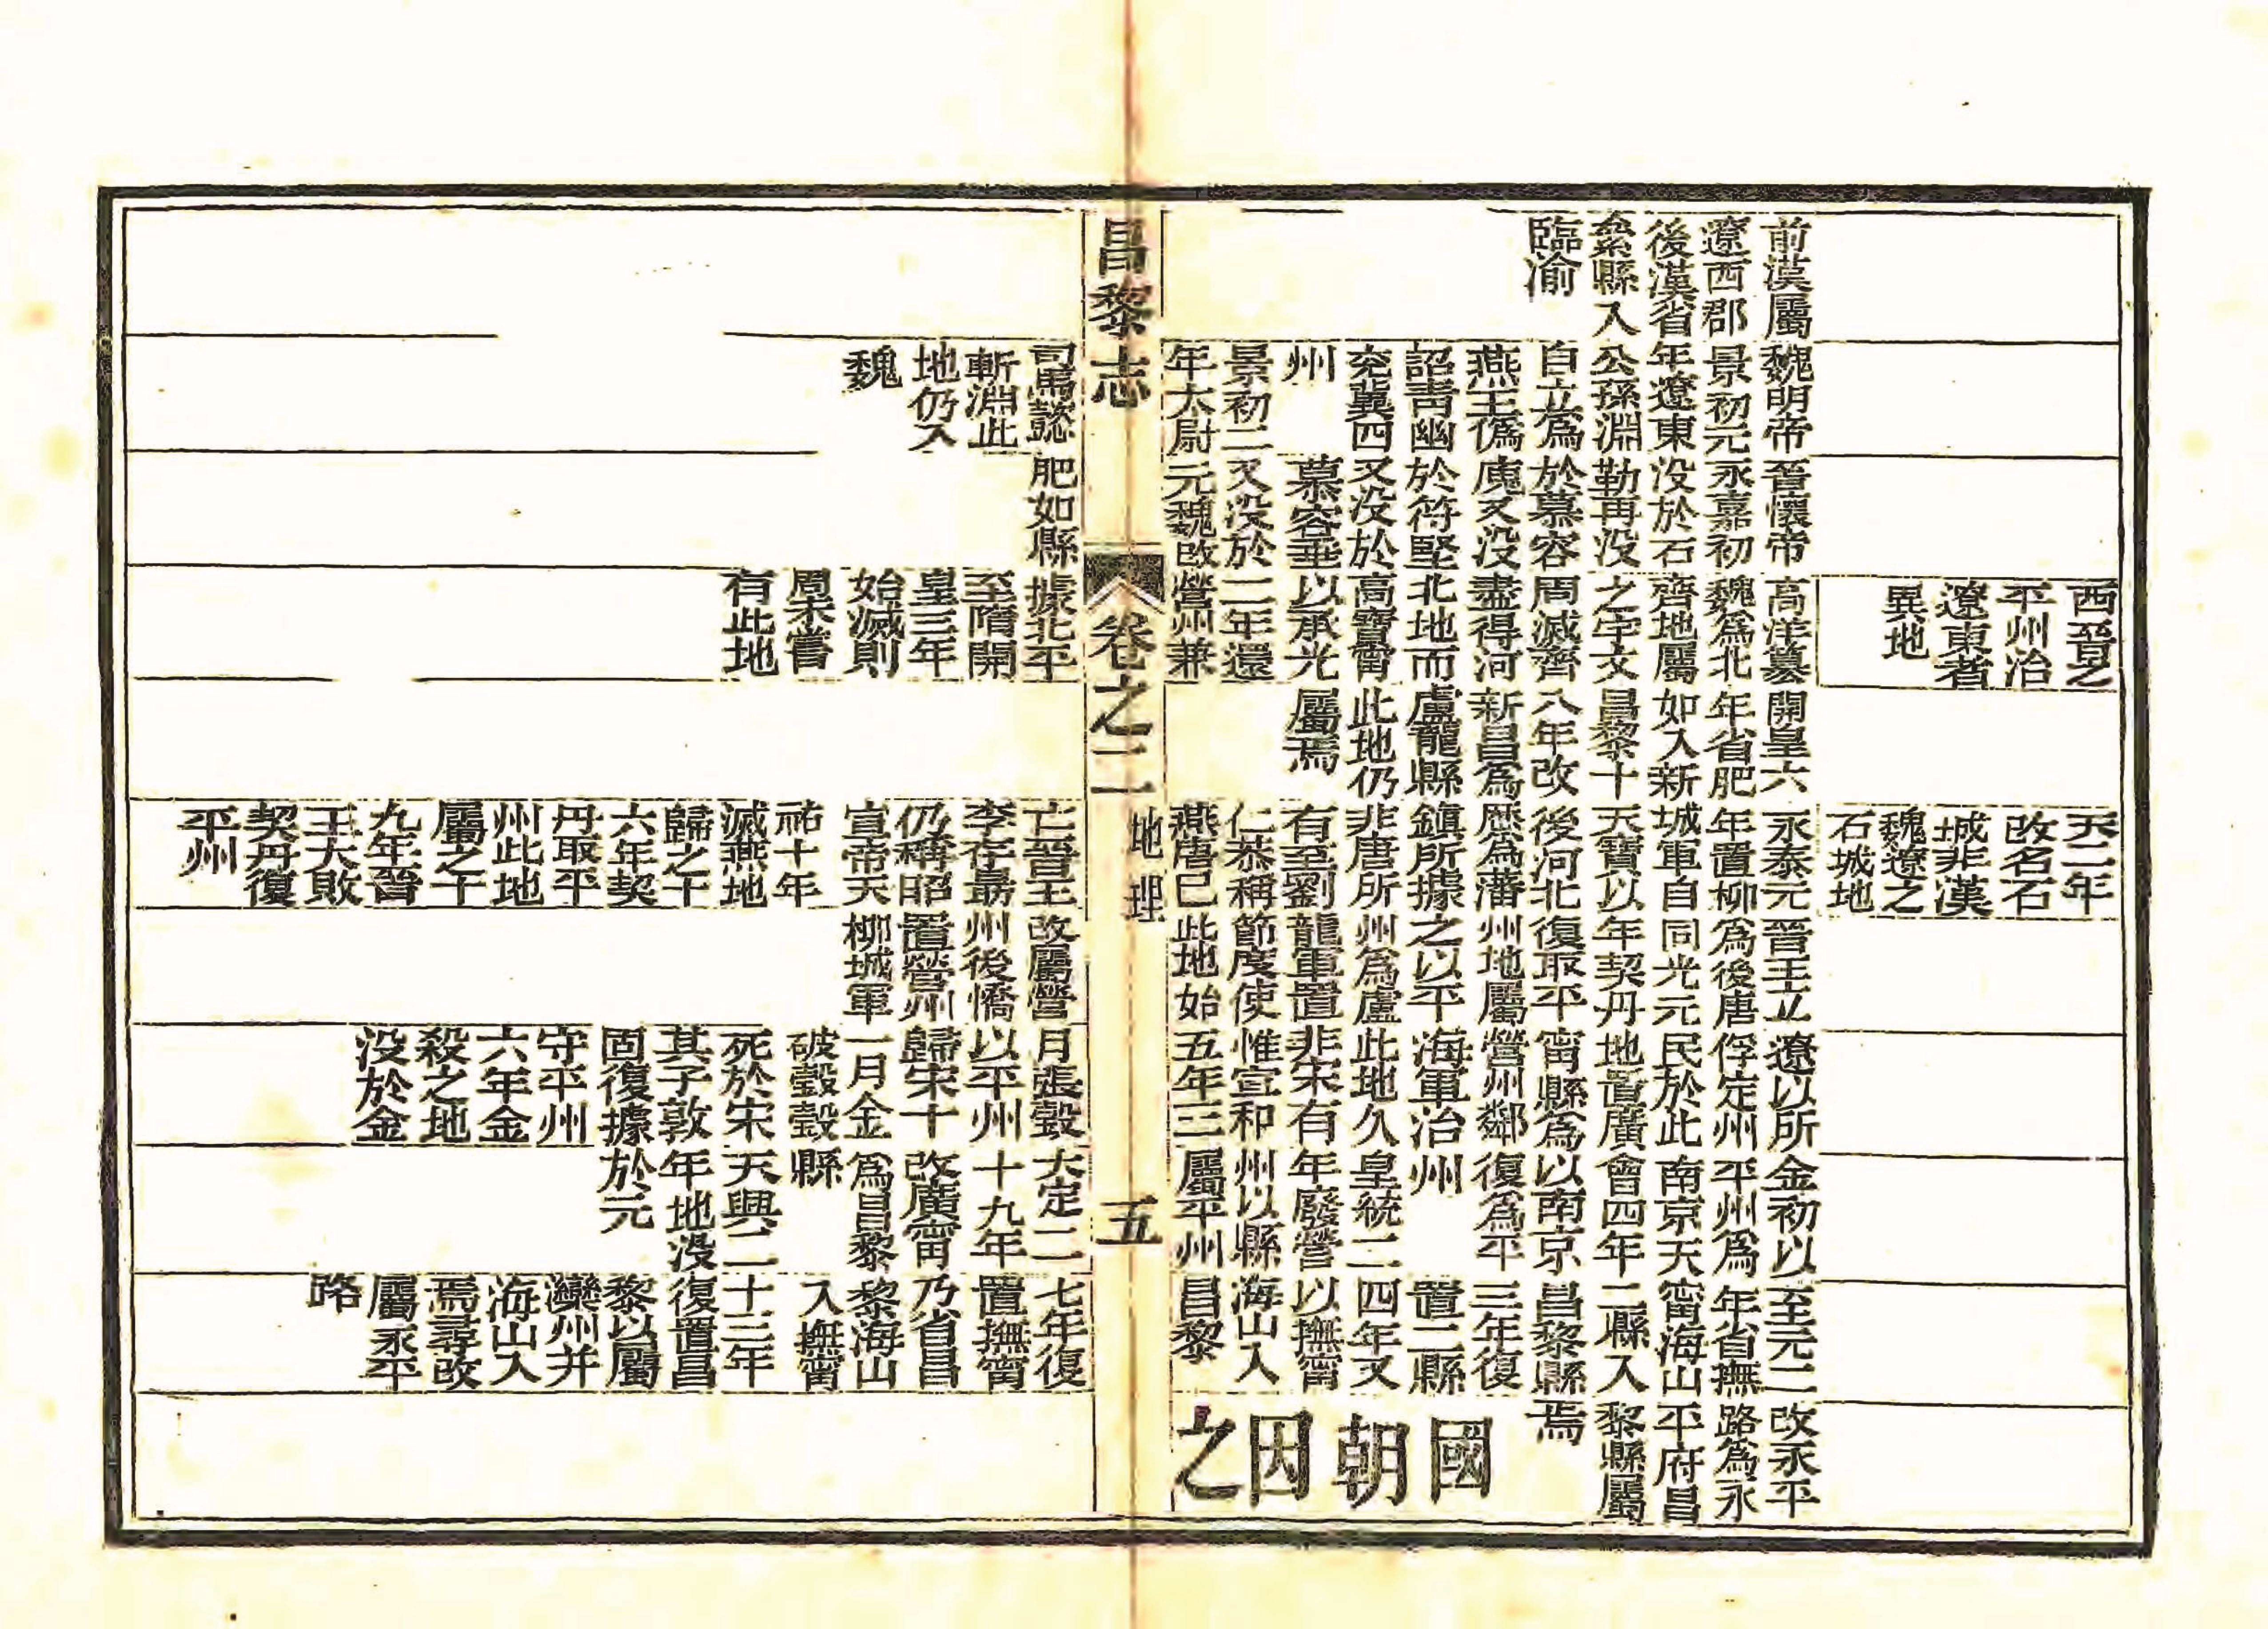 前漢屬
遼西郡
後漢省
絫縣入
臨渝
魏明帝
景初元
年遼東
公孫淵
自立為
燕王偽
詔青幽
兖冀四
州
景初二
年太尉
司馬懿
斬淵此
地仍入
魏
晉懷帝
永嘉初
没於石
勒再没
於慕容
廆又没
於符堅
又没於
慕容垂
又没於
元魏改
肥如縣
西晉之
平州治
遼東者
異地
高洋纂
魏為北
齊地屬
之宇文
周滅齊
盡得河
北地而
高寶甯
以承光
二年還
營州兼
據北平
至隋開
皇三年
始滅則
周未嘗
有此地
開皇六
年省肥
如入新
昌黎十
八年改
新昌為
盧龍縣
此地仍
屬焉
天二年
改名石
城非漢
魏遼之
石城地
永泰元
年置柳
城軍自
天寶以
後河北
歷為藩
鎮所據
非唐所
有至劉
仁恭稱
燕唐已
亡晉王
李存勗
仍稱昭
宣帝天
祐十年
滅燕地
歸之十
六年契
丹取平
州此地
屬之十
九年晉
王大敗
契丹復
平州
晉王立
為後唐
同光元
年契丹
復取平
州地屬
之以平
州為盧
龍軍置
節度使
此地始
改屬營
州後僑
置營州
柳城軍
遼以所
俘定州
民於此
地置廣
甯縣為
營州鄰
海軍治
此地久
非宋有
惟宣和
五年三
月張瑴
以平州
歸宋十
一月金
破瑴瑴
死於宋
其子敦
固復據
守平州
六年金
殺之地
没於金
金初以
平州為
南京天
會四年
以南京
復為平
州
皇統二
年廢營
州以縣
屬平州
大定二
十九年
改廣甯
為昌黎
縣
天興二
年地没
於元
至元二
年省撫
甯海山
二縣入
昌黎縣
三年復
置二縣
四年又
以撫甯
海山入
昌黎
七年復
置撫甯
乃省昌
黎海山
入撫甯
十三年
復置昌
黎以屬
灤州并
海山入
焉尋改
屬永平
路
改永平
路為永
平府昌
黎縣屬
焉
國朝因之
昌黎志 卷之二 地理 五